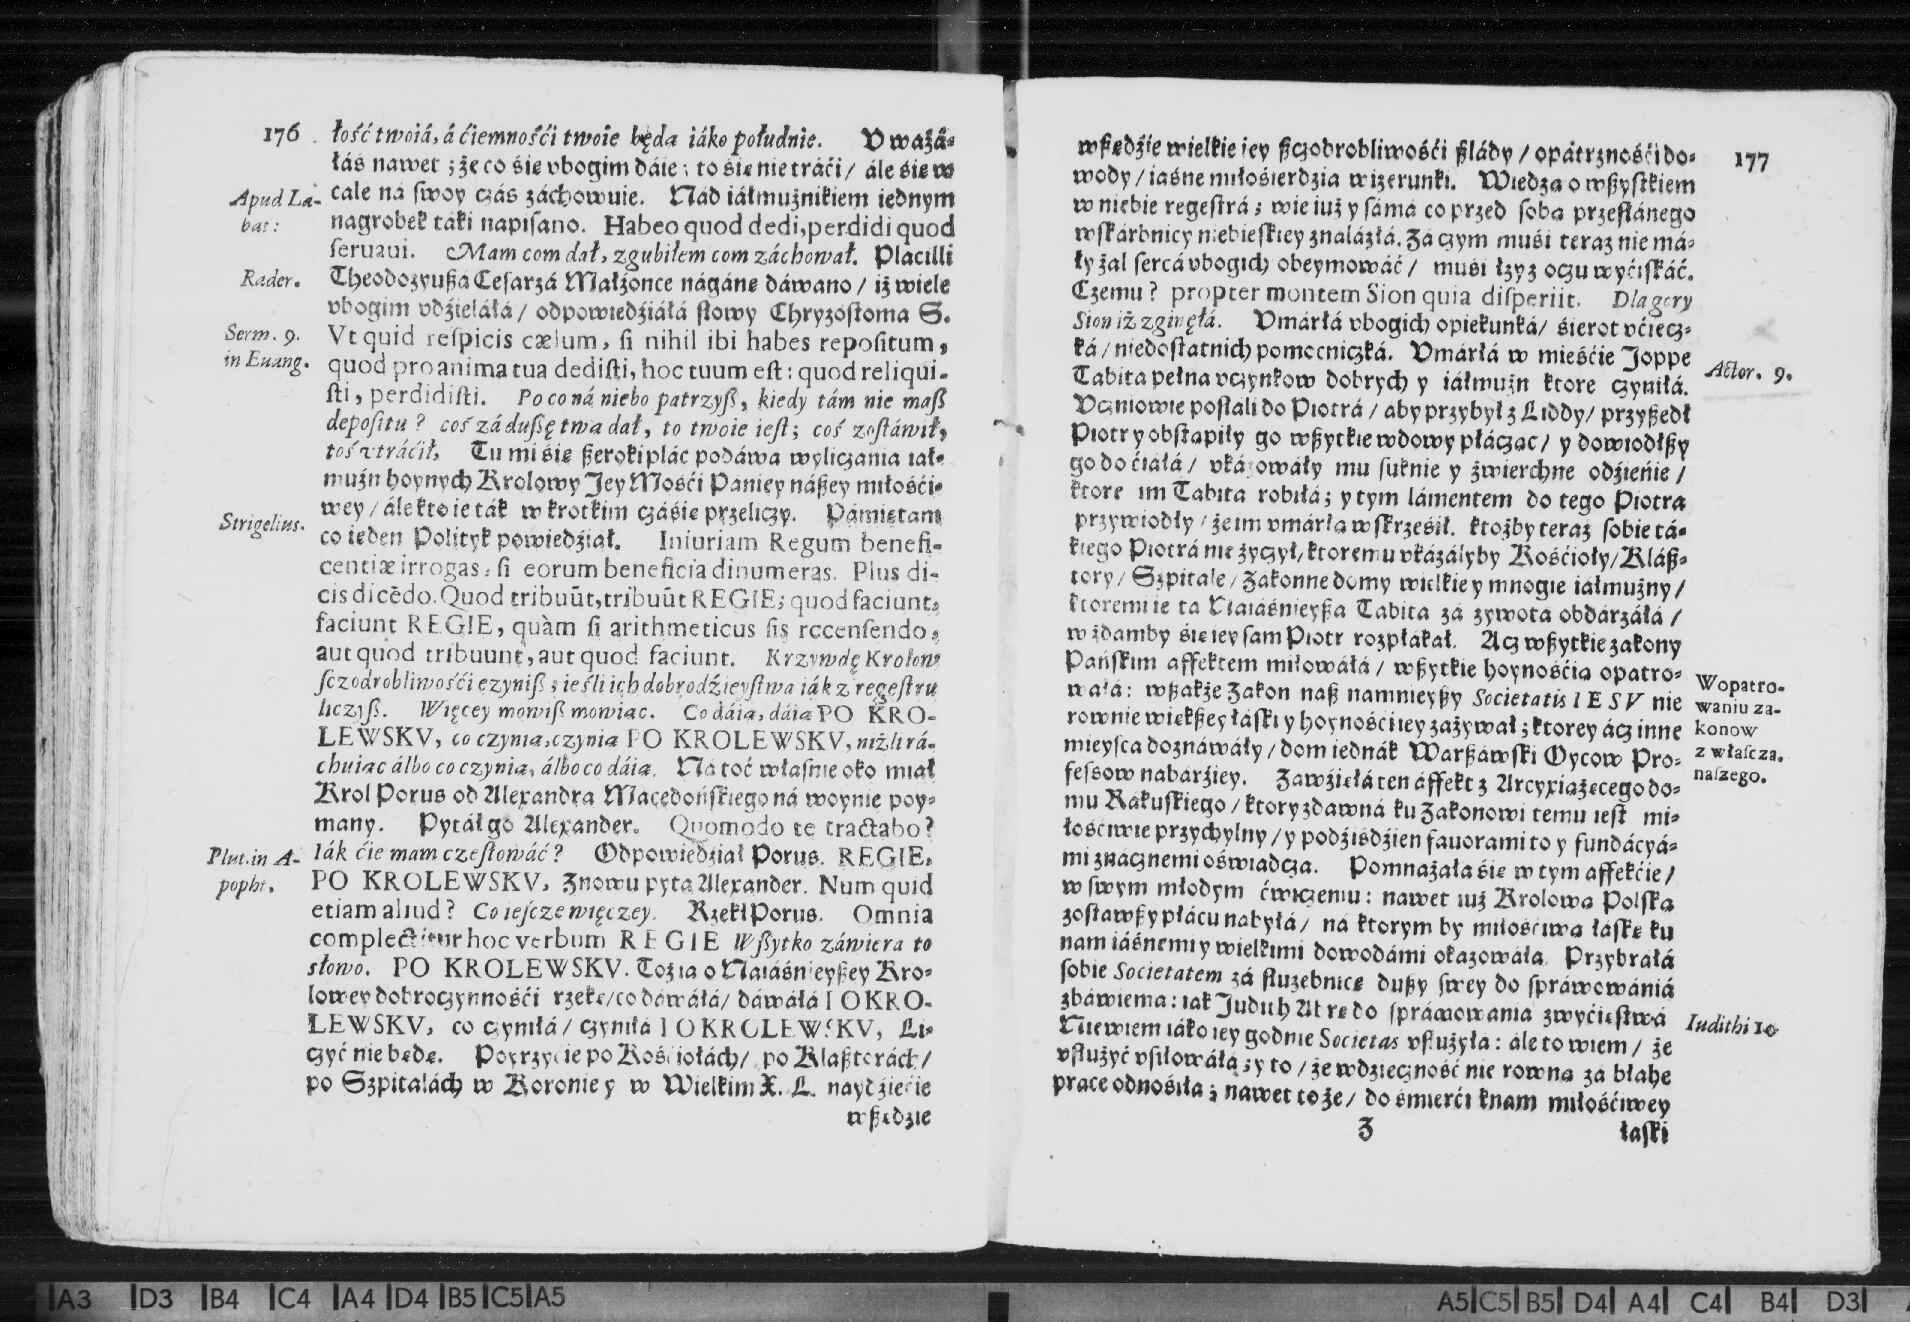 176
łość twoiá, á ćiemnośći twoie będa iáko południe. Vważá-
łáś nawet; że co śie vbogim dáie; to śie nie tráći/ ále śie w
cale ná swoy czás záchowuie. Nád iáłmużnikiem iednym
nagrobek táki napisano. Habeo quod dedi, perdidi quod
seruaui. Mam com dał, zgubiłem com záchował. Placilli
Theodozyußá Cesarzá Małżonce nágáne dáwano/ iż wiele
vbogim vdźieláłá/ odpowiedźiáłá słowy Chryzostoma S.
Vt quid respicis cælum, si nihil ibi habes repositum,
quod pro anima tua dedisti, hoc tuum est: quod reliqui-
sti, perdidisti. Po co ná niebo patrzyß, kiedy tám nie maß
depositu? coś zá dußę twa dał, to twoie iest; coś zostáwił,
toś vtráćił. Tu mi śie ßeroki plác podáwa wyliczania iał-
mużn hoynych Krolowy Jey Mośći Paniey náßey miłośći-
wey/ ále kto ie ták w krotkim czáśie przeliczy. Pámietam
co ieden Polityk powiedźiał. Iniuriam Regum benefi-
centiæ irrogas, si eorum beneficia dinumeras. Plus di-
cis dicēdo. Quod tribuūt, tribuūt REGIE; quod faciunt,
faciunt REGIE, quàm si arithmeticus sis recensendo,
aut quod tribuunt, aut quod faciunt. Krzywdę Krolow
sczodrobliwośći czyniß; ieśli ich dobrodźieystwa iák z regestru
liczyß. Więcey mowiß mowiac. Co dáia, dáia PO KRO-
LEWSKV, co czynia, czynia PO KROLEWSKV, niżli rá-
chuiac álbo co czynia, álbo co dáia. Ná toć własnie oko miał
Krol Porus od Alexandra Macedońskiego ná woynie poy-
many. Pytał go Alexander. Quomodo te tractabo?
Iák ćie mam czestowáć? Odpowiedział Porus. REGIE,
PO KROLEWSKV, Znowu pyta Alexander. Num quid
etiam aliud? Co iescze więczey. Rzekł Porus. Omnia
complectitur hoc verbum REGIE Wßytko záwiera to
słowo. PO KROLEWSKV. Toż ia o Naiáśnieyßey Kro-
lowey dobroczynnośći rzeke/ co dáwáłá/ dáwáłá PO KRO-
LEWSKV, co czyniłá/ czyniłá PO KROLEWSKV, Li-
czyć nie bede. Poyrzycie po Kośćiołách/ po Klaßtorách/
po Szpitalách w Koronie y w Wielkim X. L. naydźiećie
wßedzie
Apud La-
bat:
Rader.
Serm. 9.
in Euang.
Strigelius.
Plut. in A-
popht.
177
wßedźie wielkie iey ßczodrobliwośći ßlády/ opátrznośći do-
wody/ iasne miłośierdzia wizerunki. Wiedza o wßystkiem
w niebie regestrá; wie iuż y sámá co przed soba przesłánego
w skárbnicy niebieskiey znalázłá. Zá czym muśi teraz nie má-
ły żal sercá vbogich obeymowáć/ muśi łzy z oczu wyćiskáć.
Czemu? propter montem Sion quia disperiit. Dla gory
Sion iż zginęłá. Vmárłá vbogich opiekunká/ śierot vćiecz-
ká/ niedostatnich pomocniczká. Vmárłá w mieśćie Joppe
Tabita pełna vczynkow dobrych y iáłmużn ktore czyniłá.
Vczniowie postali do Piotrá/ aby przybył z Liddy/ przyßedł
Piotr y obstapiły go wßytkie wdowy płáczac/ y dowiodłßy
go do ćiałá/ vkázowáły mu suknie y zwierchne odźienie/
ktore im Tabita robiłá; y tym lámentem do tego Piotra
przywiodły/ że im vmárła wskrześił. ktożby teraz sobie tá-
kiego Piotrá nie życzył/ ktoremu vkázáłyby Kośćioły/ Kláß-
tory/ Szpitale/ Zakonne domy wielkie y mnogie iałmużny/
ktoremi ie ta Naiáśnieyßa Tabita zá żywotá obdárzáłá/
wżdamby śie iey sam Piotr rozpłákał. Acz wßytkie zakony
Pańskim affektem miłowáłá/ wßytkie hoynośćia opatro-
wałá: wßakże Zakon naß namnieyßy Societatis IESV nie
rownie wiekßey łáski y hoynośći iey zażywał; ktorey ácz inne
mieysca doznáwáły/ dom iednák Warßáwski Oycow Pro-
fessow nabárźiey. Zawźiełá ten áffekt z Arcyxiażecego do-
mu Rakuskiego/ ktory zdawná ku Zakonowi temu iest mi-
łośćiwie przychylny/ y podźiśdźien fauorami to y fundácyá-
mi znácznemi oświadcza. Pomnażała śie w tym affekćie/
w swym młodym ćwiczeniu: nawet iuż Krolowa Polska
zostawßy płácu nabyłá/ ná ktorym by miłośćiwa łáske ku
nam iáśnemi y wielkimi dowodámi okazowáła. Przybrałá
sobie Societatem zá służebnice dußy swey do spráwowániá
zbáwienia: iak Judith Abrę do spráwowania zwyćiestwá
Nie wiem iáko iey godnie Societas vsłużyła: ále to wiem/ że
vsłużyć vśiłowáłá; y to/ że wdzieczność nie rowna zá błahe
prace odnośiła; nawet to że/ do śmierći k nam miłośćiwey
Z łaski
Actor. 9.
W opatro-
waniu za-
konow
z własczą.
naszego.
Iudithi 10
A3 D3 B4 C4 A4 D4 B5 C5 A5
A5 C5 B5 D4 A4 C4 B4 D3